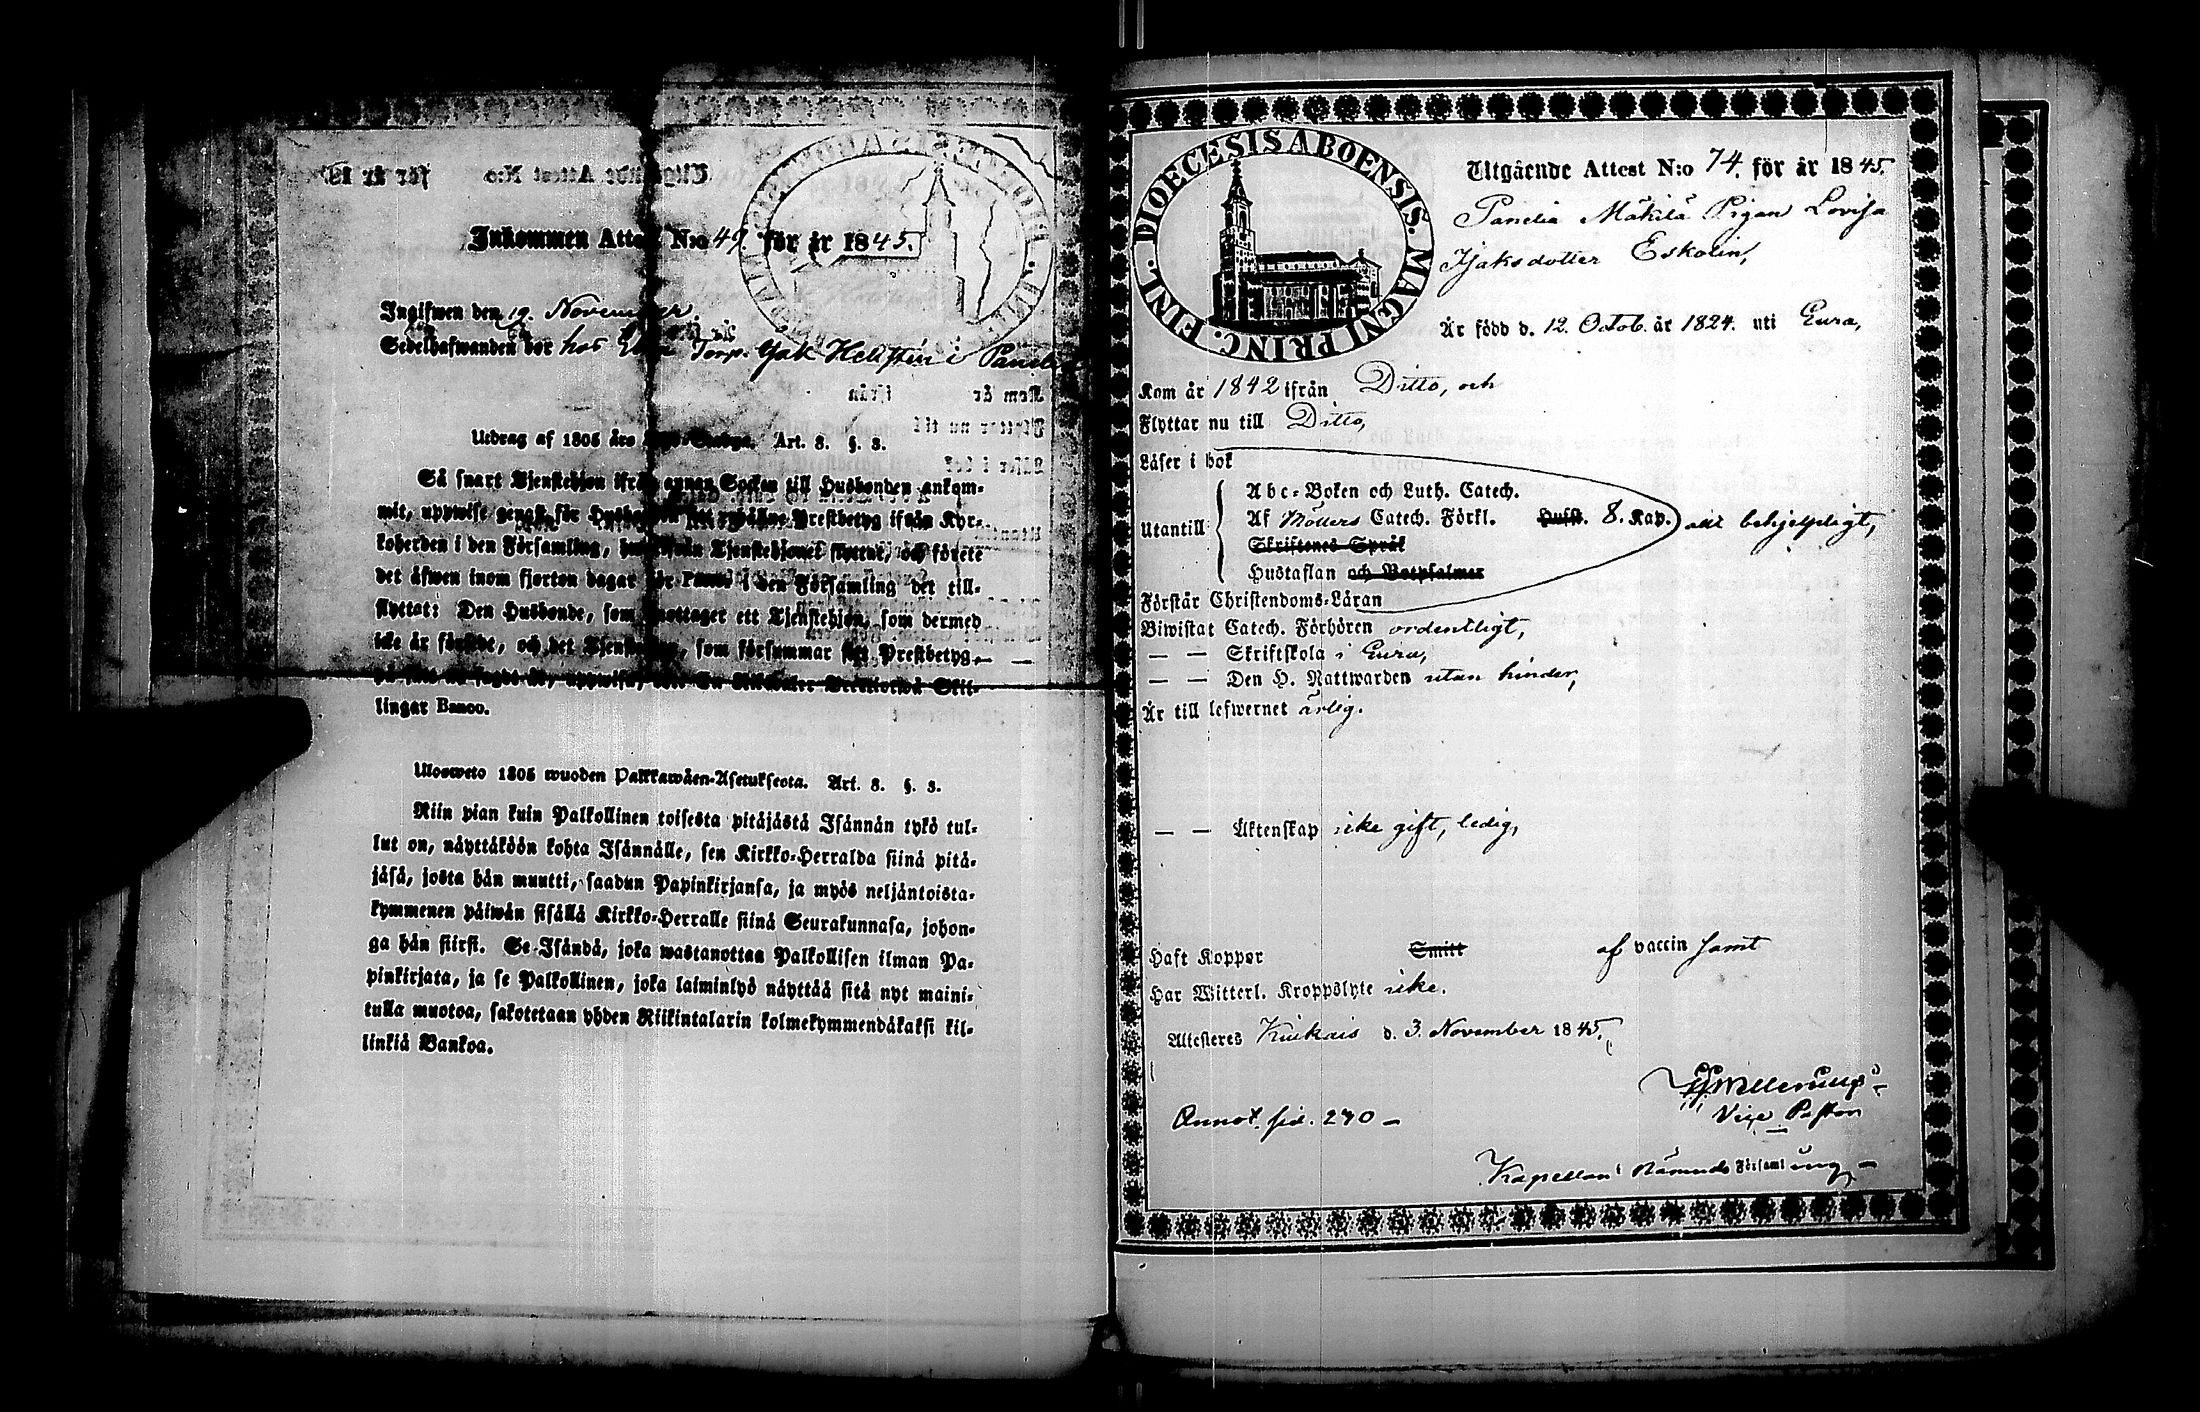 Inkommen Attest N:o 49. för år 1845.
Ingifwen den 19. November.
Sedelhafwanden bor hos Torp. Isak Hellsten i Panelia
Utdrag af 1805 års Art. 8. §. 3.
Så snart Tjenstehjon ifrån annan Socken till Husbonden ankom-
mit, uppwise genast för Husbonden sitt Prestbetyg ifrån Kyr-
koherden i den Församling, hwarifrån Tjenstehjonet flyttat, och förete
det äfwen inom fjorton dagar för i den Församling det till-
flyttat: Den Husbonde, som emottager ett Tjenstehjon, som dermed
icke är försedt, och det Tjenstehjon, som försummar sitt Prestbetyg
på sätt nu sagdt är, uppwisa, böte En Riksdaler Trettiotwå Skil-
lingar Banco.
Ulosweto 1805 wuoden Palkkawäen-Asetuksesta. Art. 8. §. 3.
Niin pian kuin Palkollinen toisesta pitäjästä Isännän tykö tul-
lut on, näyttäköön kohta Isännälle, sen Kirkko-Herralda siinä pitä-
jäsä, josta hän muutti, saadun Papinkirjansa, ja myös neljäntoista-
kymmenen päiwän sisällä Kirkko-Herralle siinä Seurakunnasa, johon-
ga hän siirsi. Se Isändä, joka wastanottaa Palkollisen ilman Pa-
pinkirjata, ja se Palkollinen, joka laiminlyö näyttää sitä nyt maini-
tulla muotoa, sakotetaan yhden Riikintalarin kolmekymmendäkaksi kil-
linkiä Bankoa.
DIOECESIS ABOENSIS. MAGNI PRINC. FINL.
Utgående Attest N:o 74. för år 1845.
Panelia Mäkilä Pigan Lovisa
Isaksdotter Eskolin,
Är född d. 12. Octob. år 1824. uti Eura,
Kom år 1842 ifrån Ditto, och
Flyttar nu till Ditto,
Läser i bok
Utantill
Abc-Boken och Luth. Catech.
Af Möllers Catech. Förkl. Hufst. 8. Kap. allt behjelpligt,
Skriftenes Språk
Hustaflan och Botpsalmer
Förstår Christendoms-Läran
Biwistat Catech. Förhören ordentligt,
— — Skriftskola i Eura,
— — Den H. Nattwarden utan hinder,
Är till lefwernet ärlig.
— — Äktenskap icke gift, ledig,
Haft Koppor Smitt af vaccin samt
Har Witterl. Kroppslyte icke.
Attesteres Kiukais d. 3. November 1845.
Vice Pastor
Annot. sid. 270 —
Kapellan i Församling —